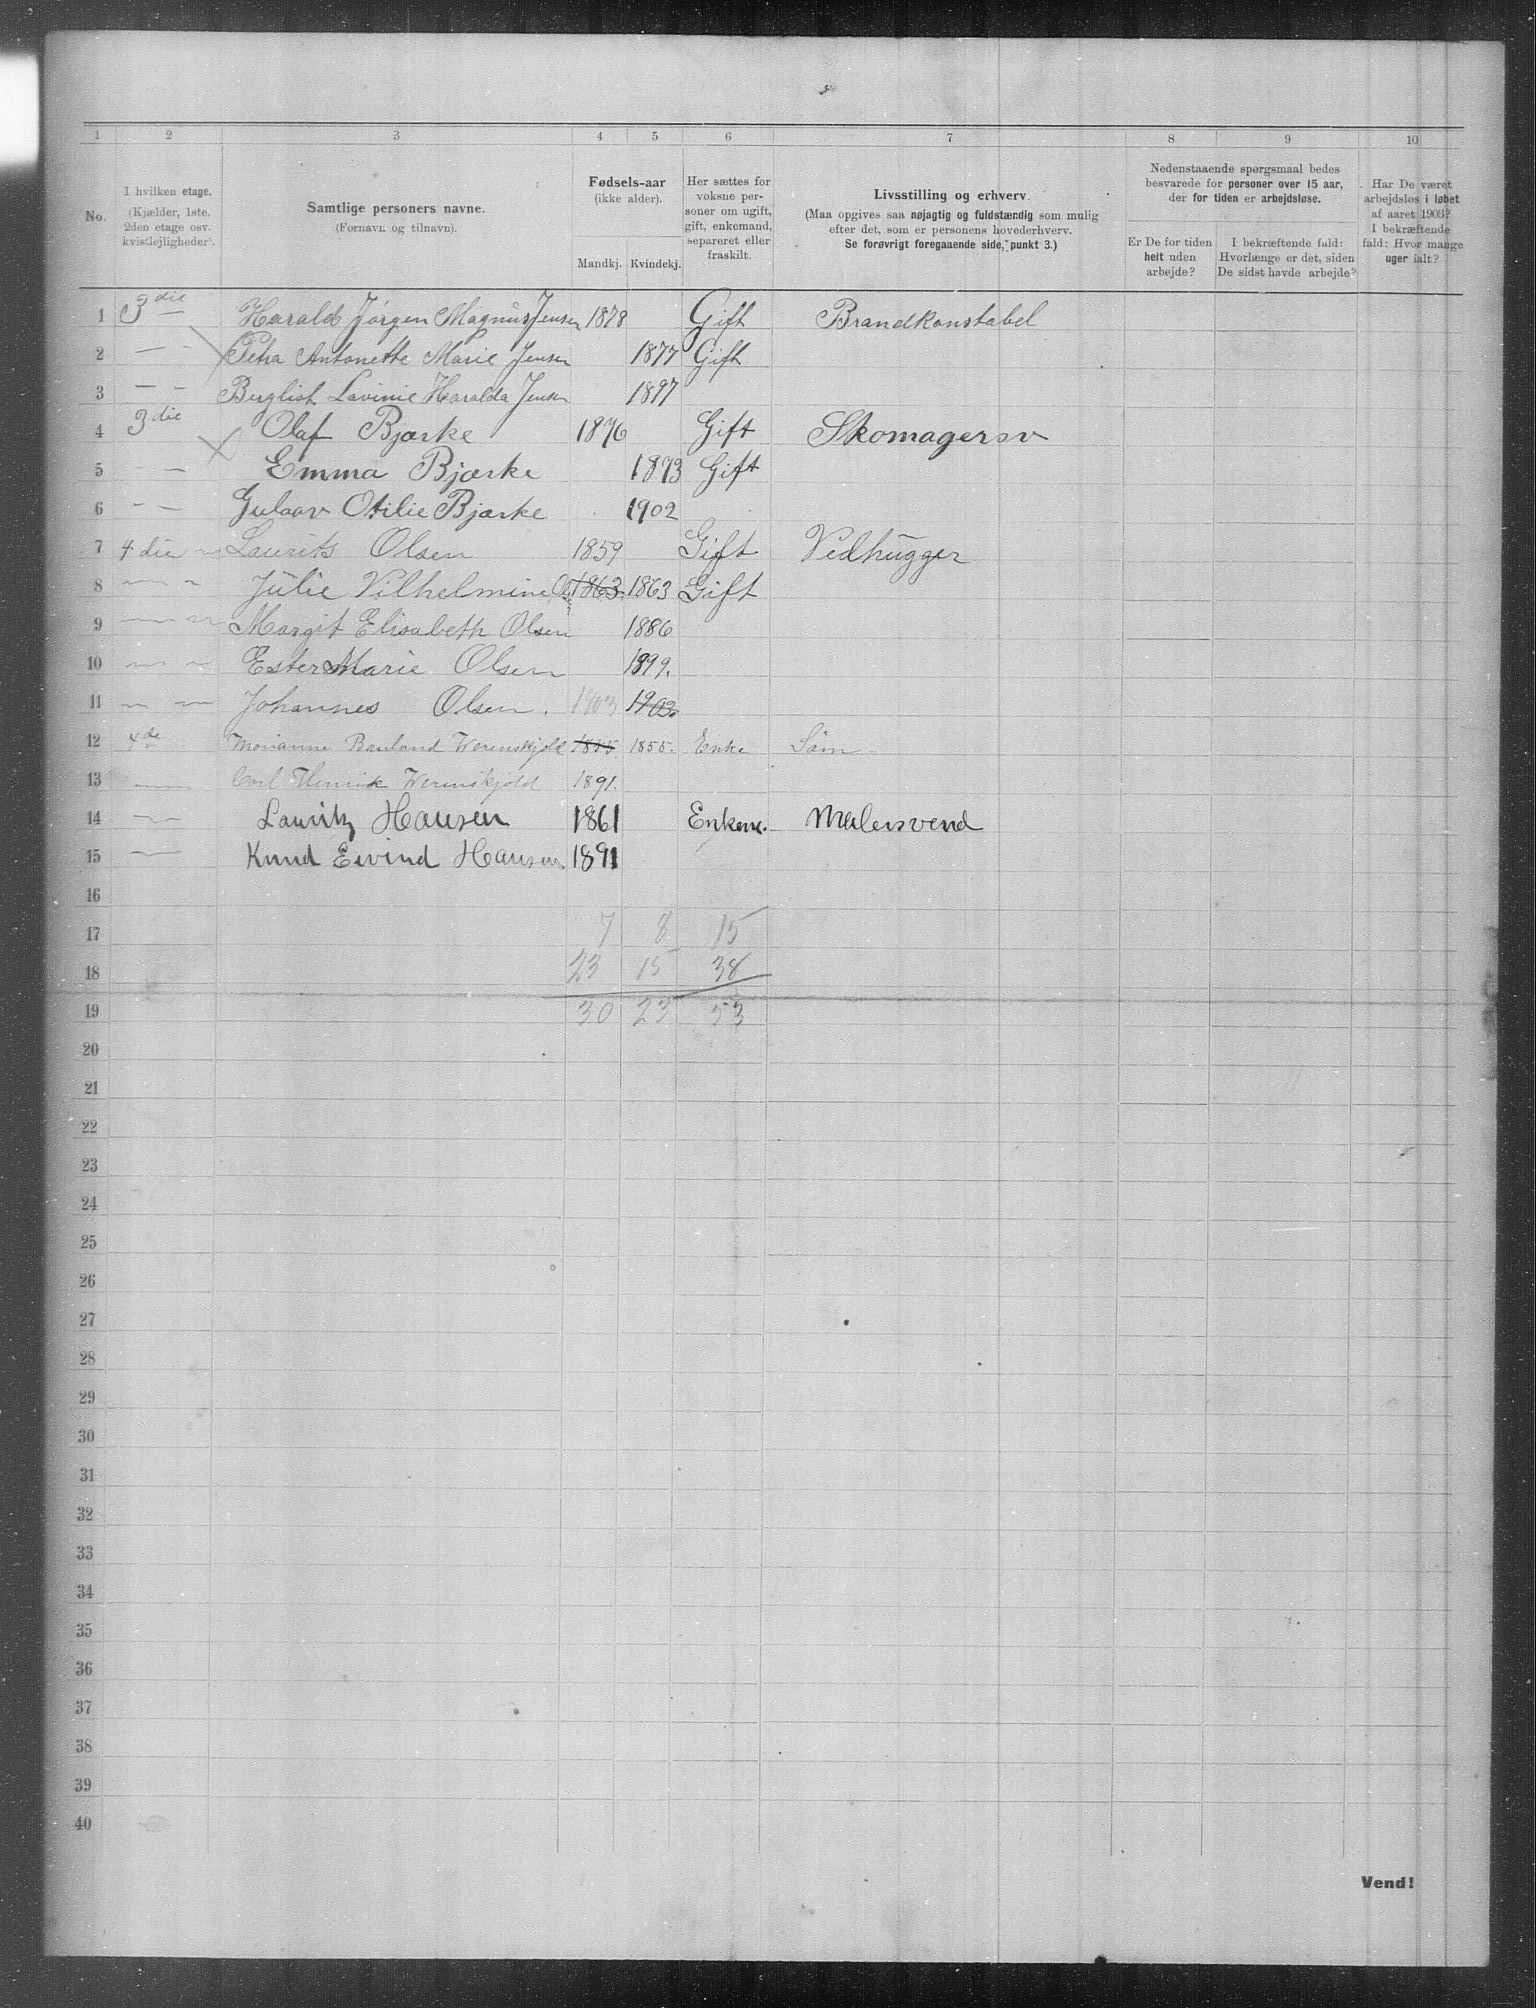 1 2 3 4 5 6 7 8 9 10
No.
I hvilken etage.
(Kjælder, 1ste,
2den etage osv.
kvistleiligheder).
Samtlige personers navne.
(Fornavn og tilnavn).
Fødsels-aar
(ikke alder).
Mandkj. Kvindekj.
Her sættes for
voksne per-
soner om ugift,
gift, enkemand,
separeret eller
fraskilt.
Livsstilling og erhverv.
(Maa opgives saa nøjagtig og fuldstændig som mulig
efter det, som er personens hovederhverv.
Se forøvrigt foregaaende side, punkt 3.)
Nedenstaaende spørgsmaal bedes
besvarede for personer over 15 aar,
der for tiden er arbejdsløse.
Er De for tiden
helt uden
arbejde?
I bekræftende fald:
Hvorlænge er det, siden
De sidst havde arbejde?
Har De været
arbejdsløs i løbet
af aaret 1903?
I bekræftende
fald: Hvor mange
uger ialt?
1 3die Harald Jørgen Magnus Jensen 1878 Gift Brandkonstabel
2 — - Petra Antonette Marie Jensen 1877 Gift
3 — - Bergliot Lavinie Haralda Jensen 1897
4 3die Olaf Bjærke 1876 Gift Skomagersv
5 - — Emma Bjærke 1873 Gift
6 - — Otilie Bjærke 1902
7 4 die Laurits Olsen 1859 Gift Vedhugger
8 Julie Vilhelmine Ols 1863 1863 Gift
9 Margit Elisabeth Olsen 1886
10 Ester Marie Olsen 1899.
11 Johannes Olsen. 1903 1903
12 4de Marianne Werenskjold 1855 1855. Enke Søm
13 — Carl Henrik Werenskjold 1891.
14 — Lauritz Hansen 1861 Enkem. Malersvend
15 — Knud Eivind Hansen 1891
16
17 7 8 15
18 23 15 38
19 30 23 53
20
21
22
23
24
25
26
27
28
29
30
31
32
33
34
35
36
37
38
39
40
Vend!